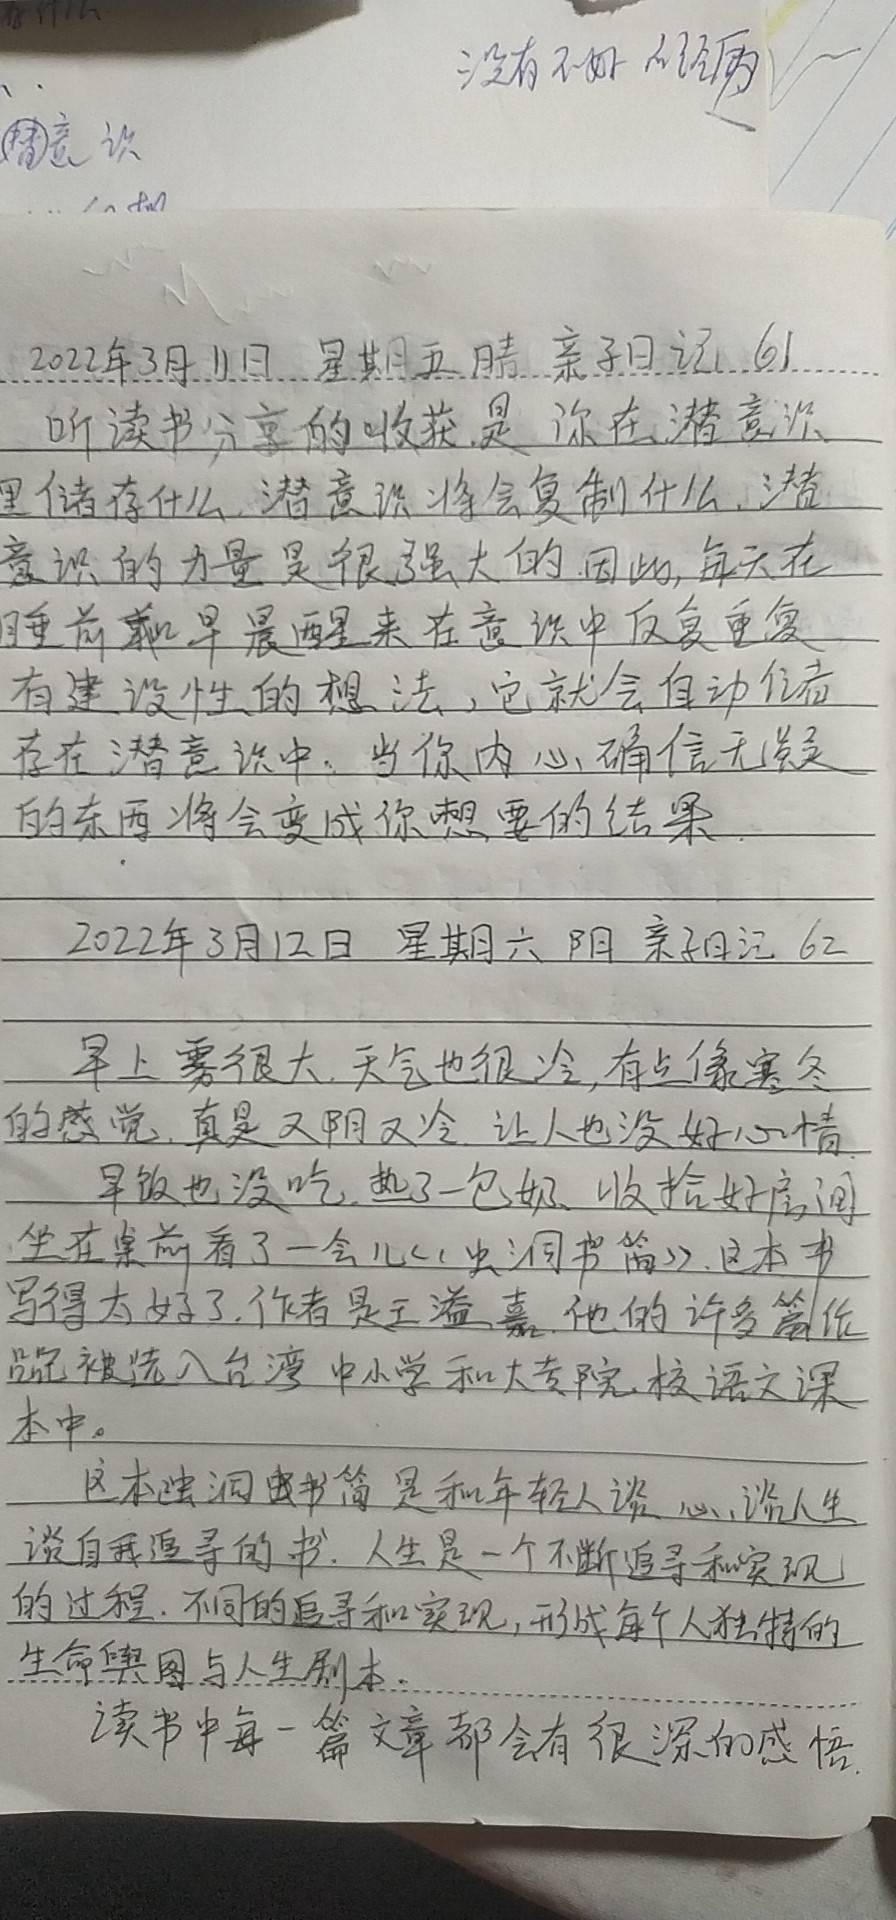 没有不好的经历
潜意识
2022年3月11日 星期五 晴 亲子日记 61
听读书分享的收获是 你在潜意识
里储存什么,潜意识将会复制什么,潜
意识的力量是很强大的.因此,每天在
睡前和早晨醒来在意识中反复重复
有建设性的想法,它就会自动储
存在潜意识中。当你内心确信无疑
的东西将会变成你想要的结果.
2022年3月12日 星期六 阴 亲子日记 62
早上雾很大.天气也很冷,有点像寒冬
的感觉.真是又阴又冷.让人也没好心情.
早饭也没吃.热了一包奶.收拾好房间
坐在桌前看了一会儿《虫洞书简》.这本书
写得太好了.作者是王溢嘉.他的许多篇作
品被选入台湾中小学和大专院校语文课
本中。
这本虫洞书简是和年轻人谈心,谈人生
谈自我追寻的书.人生是一个不断追寻和实现
的过程.不同的追寻和实现,形成每个人独特的
生命舆图与人生剧本.
读书中每一篇文章都会有很深的感悟.